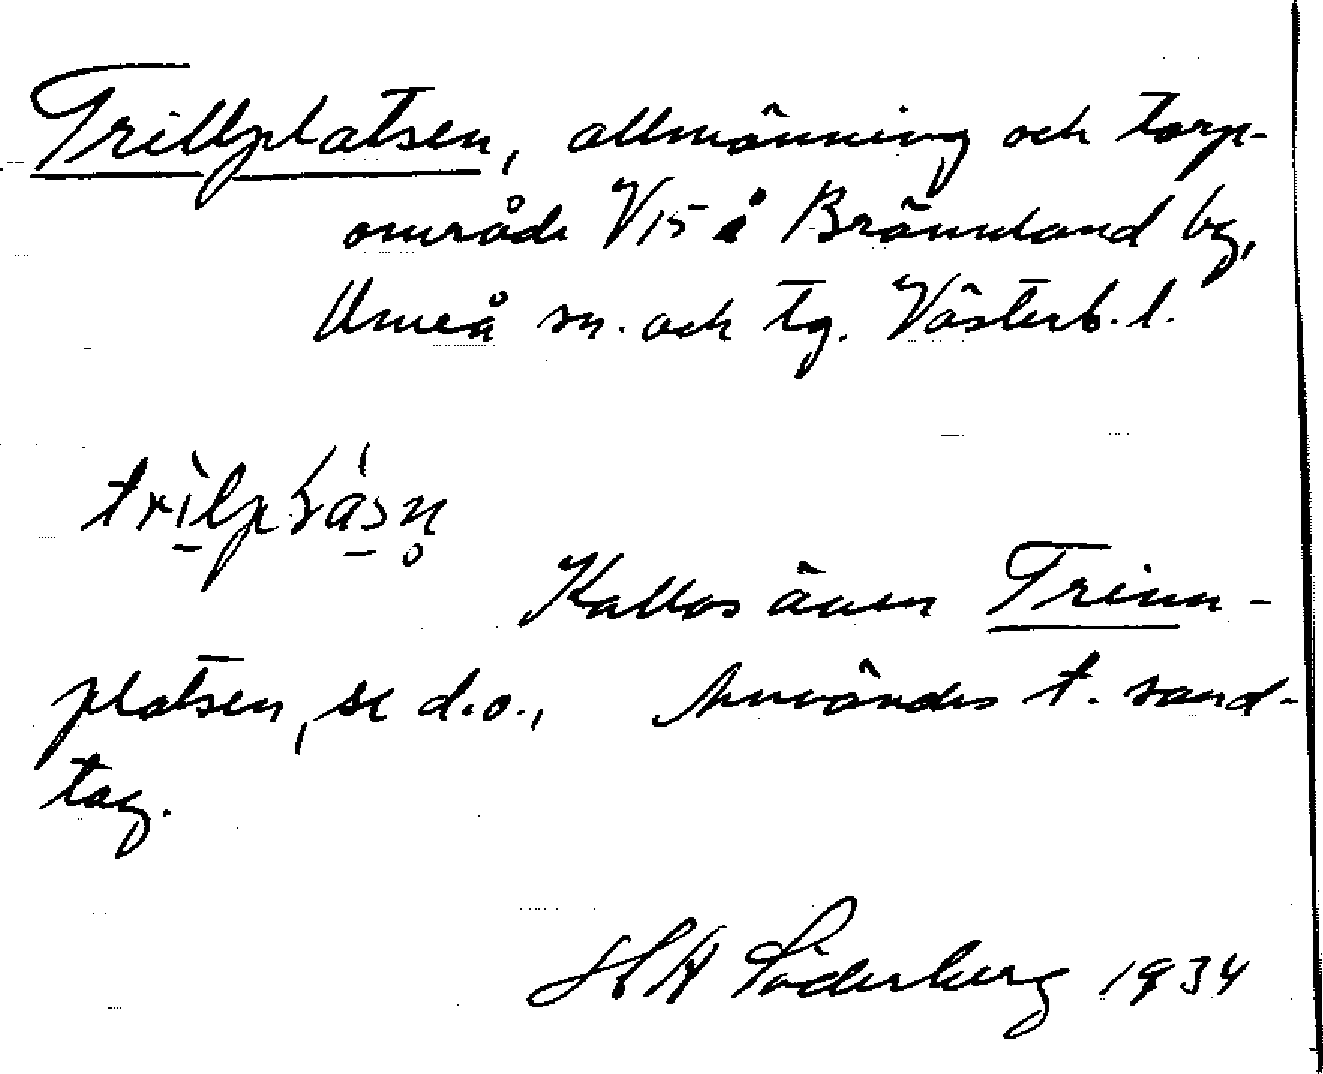 Trillplatsen, allmänning och torp-
område V15 i Brännland by,
Umeå sn. och tg. Västerb. l.
Kallas även Trinn-
platsen, se d.o., Användes t. sand-
tag.
Söderberg 1934